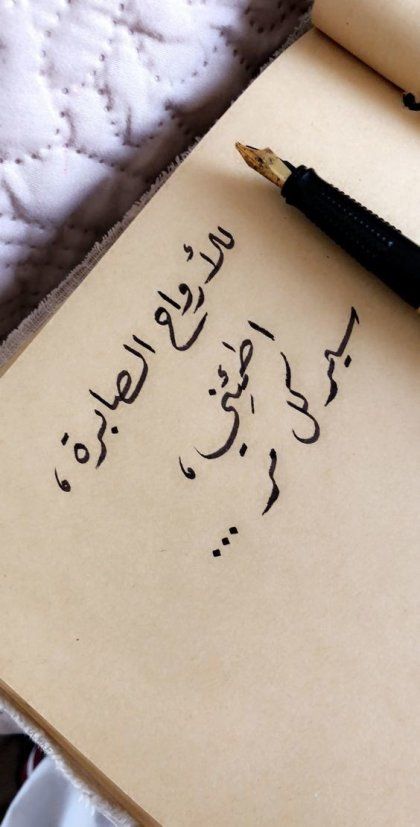 للأرواح الصابرة ،
اطمَئِني ،
سيمر كل مر ...